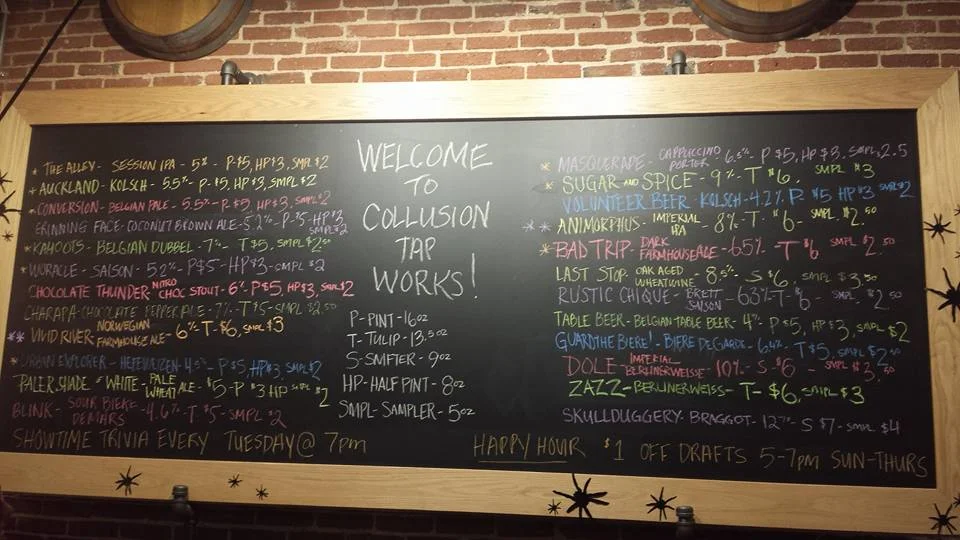 * THE ALLEY - SESSION IPA - 5% - P $5, HP $3, SMPL $2
* AUCKLAND - KOLSCH - 5.5% - P $5, HP $3, SMPL $2
* CONVERSION - BELGIAN PALE - 5.5% - P $5, HP $3, SMPL $2
GRINNING FACE - COCONUT BROWN ALE - 5.2% - P $5 HP $3 SMPL $2
* KAHOOTS - BELGIAN DUBBEL - 7% - T $5, SMPL $2.50
* WORACLE - SAISON - 5.2% - P $5 - HP $3 - SMPL $2
CHOCOLATE THUNDER - NITRO CHOC STOUT - 6% P $5, HP $3, SMPL $2
CHARAPA - CHOCOLATE PEPPER ALE - 7% - T $5 - SMPL $2.50
** VIVID RIVER - NORWEGIAN FARMHOUSE ALE - 6% T - $6, SMPL $3
* URBAN EXPLORER - HEFEWEIZEN - 4.5% - P $5, HP $3, SMPL $2
PALER SHADE OF WHITE - PALE WHEAT ALE - $5 - P $3 HP SMPL $2
BLINK - SOUR BIERE DE MARS - 4.6% - T $5 - SMPL $2
SHOWTIME TRIVIA EVERY TUESDAY @ 7pm
WELCOME
TO
COLLUSION
TAP
WORKS!
P - PINT - 16oz
T - TULIP - 13.5oz
S - SNIFTER - 9oz
HP - HALF PINT - 8oz
SMPL - SAMPLER - 5oz
* MASQUERADE - CAPPUCCINO PORTER - 6.5% - P $5, HP $3, SMPL 2.5
* SUGAR AND SPICE - 9% - T $6, SMPL $3
VOLUNTEER BEER - KOLSCH - 4.2% P $5 HP $3 SMPL $2
** ANIMORPHUS - IMPERIAL IPA - 8% - T $6 - SMPL $2.50
* BAD TRIP - DARK FARMHOUSE ALE - 6.5% T $6 SMPL $2.50
LAST STOP - OAK AGED WHEATWINE - 8.5% - S $6, SMPL $3.50
RUSTIC CHIQUE - BRETT SAISON - 6.5% - T $6 - SMPL $2.50
TABLE BEER - BELGIAN TABLE BEER - 4% - P $5, HP $3, SMPL $2
GUARD THE BIERE! - BIERE DE GARDE - 6.4% T $5, SMPL $2.50
DOLE - IMPERIAL BERLINERWEISSE - 10% - S $6 - SMPL $3.50
ZAZZ - BERLINERWEISS - T - $6, SMPL $3
SKULLDUGGERY - BRAGGOT - 12% - S $7 - SMPL $4
HAPPY HOUR $1 OFF DRAFTS 5-7pm SUN-THURS